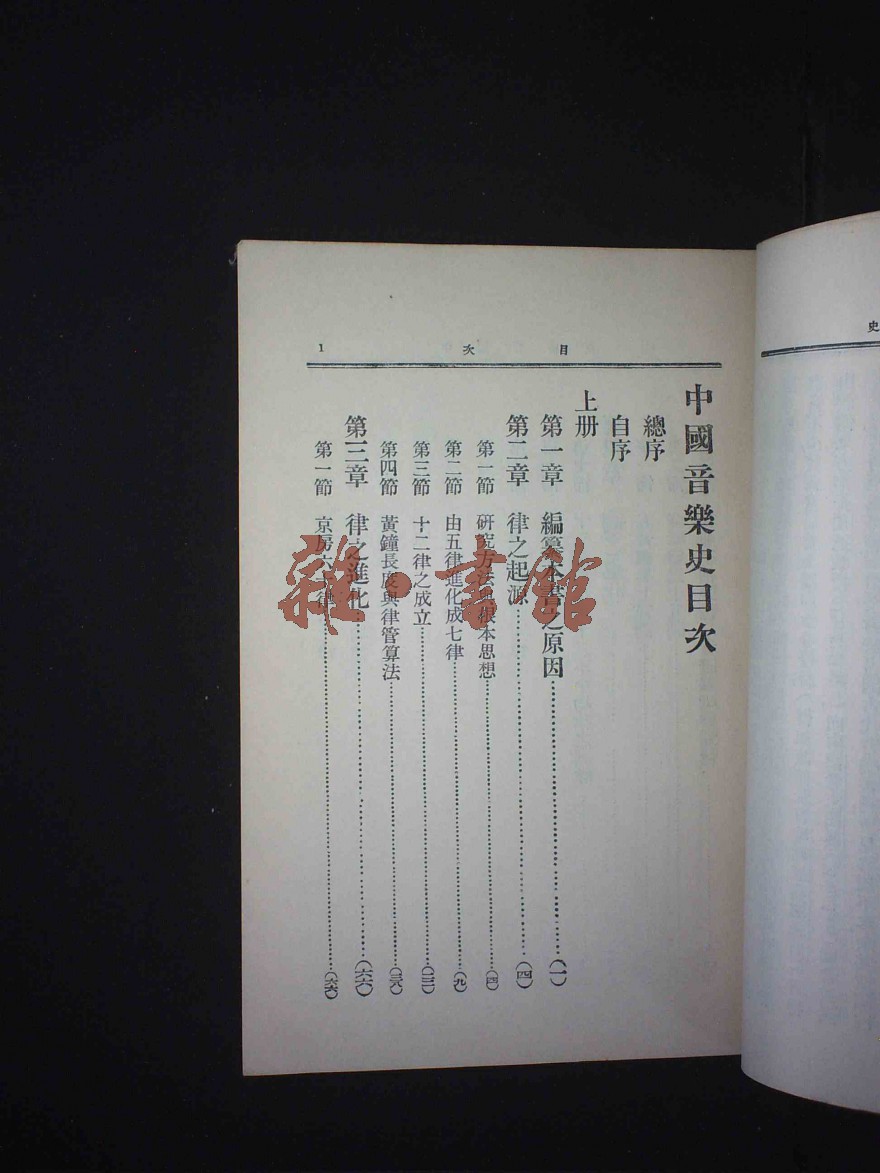 1 次 目
中國音樂史目次
總序
自序
上册
第一章 編纂本書之原因……(一)
第二章 律之起源……(四)
第一節 研究方法與根本思想……(四)
第二節 由五律進化成七律……(九)
第三節 十二律之成立……(二二)
第四節 黃鐘長度與律管算法……(三八)
第三章 律之進化……(六六)
第一節 京房六十律……(六六)
史
雜·書館